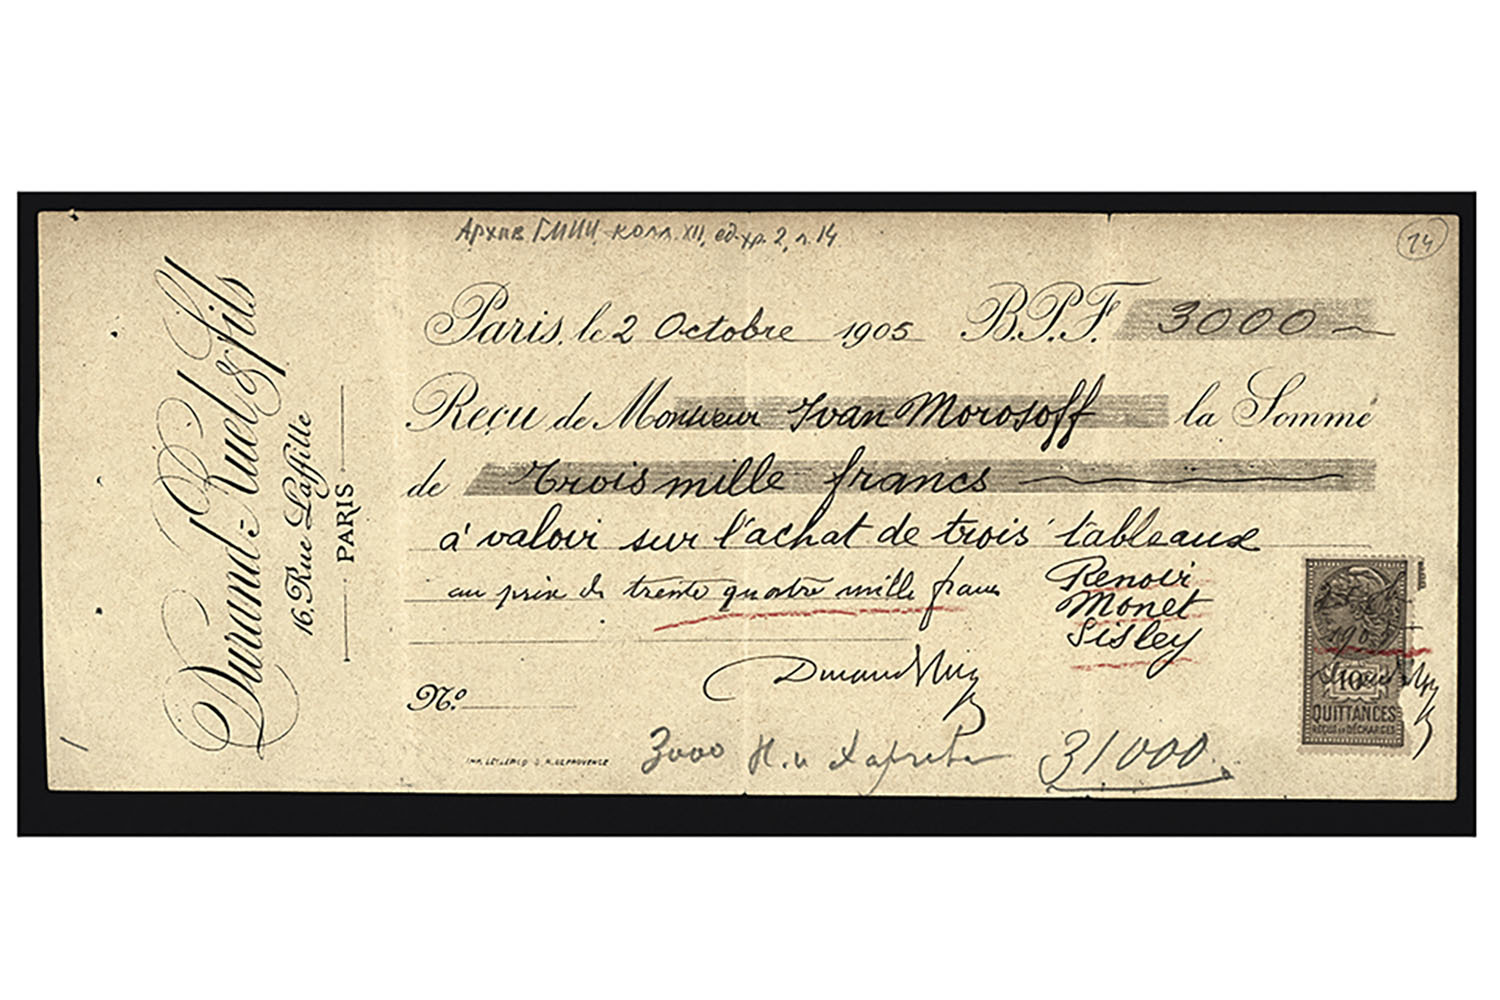 Архив ГМИИ колл. XII, ед. хр. 2, л. 14
14
Durand-Ruel & fils
16, Rue Laffitte
PARIS
Paris, le 2 Octobre 1905 B.P.F. 3000
Reçu de Monsieur Ivan Morosoff la Somme
de Trois mille francs
à valoir sur l'achat de trois tableaux
au prix de trente quatre mille francs
Renoir
Monet
Sisley
Durand Ruel
N.º
3000 31000
190
10
QUITTANCES
REÇUS ET DÉCHARGES